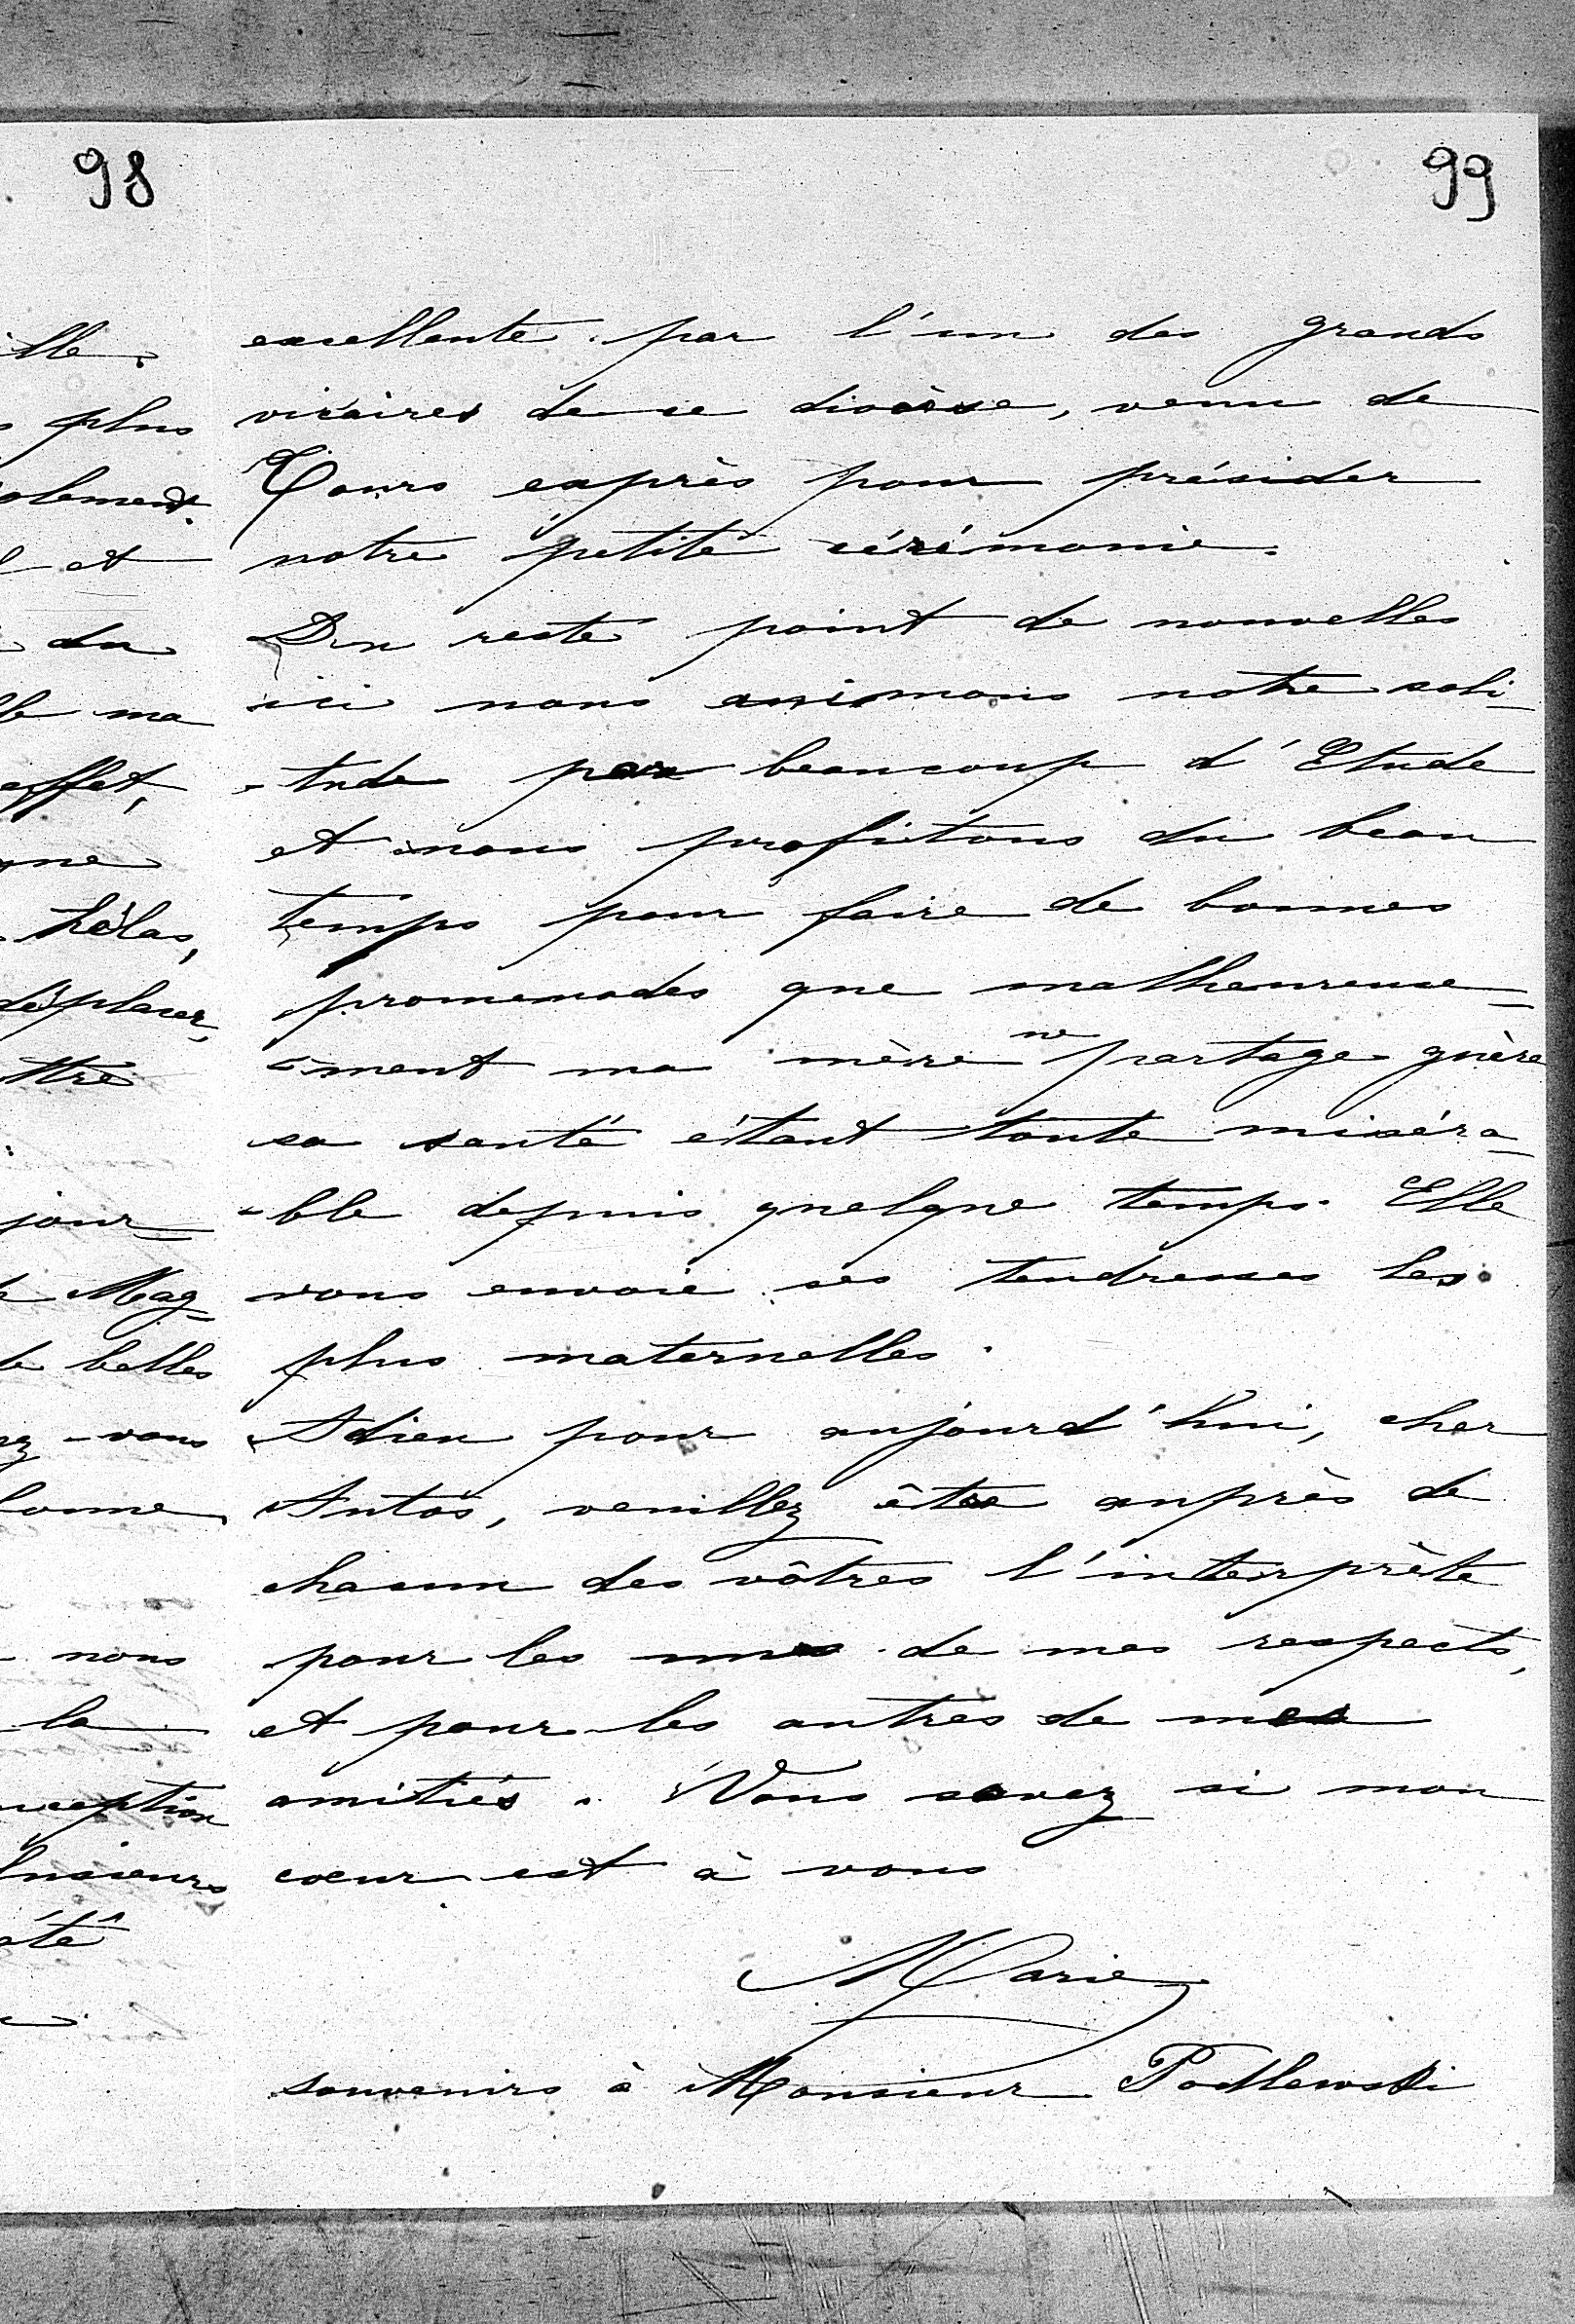 98
99
ille.
plus
olement.
et
du
le ma
effet,
gne
hélas,
déplacer,
ttre
:
jour=
le Mag=
de belles
ez-vous
bonne
nous
la
nception
lusieurs
été
excellente par l'un des grands
vicaires de ce diocèse, venu de
Tours exprès pour présider
notre petite cérémonie.
Du reste point de nouvelles
ici nous animons notre soli-
-tude par beaucoup d'Etude
et nous profitons du beau
temps pour faire de bonnes
promenades que malheureuse=
=ment ma mère ne partage guère
sa santé étant toute miséra-
-ble depuis quelque temps. Elle
vous envoie ses tendresses les
plus maternelles.
Adieu pour aujourd'hui, cher
Antos, veuillez être auprès de
chacun des vôtres l'interprète
pour les uns de mes respects,
et pour les autres de mes
amitiés. Vous savez si mon
coeur est à vous
Marie
souvenirs à Monsieur Podlewski